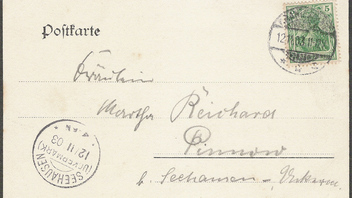 Postkarte
5
12.11.03.11-12V.
Fräulein
Martha Reichard
Pinnow
b. Seehausen - Uckerm.
SEEHAUSEN
(UCKERMARK)
12 11 03